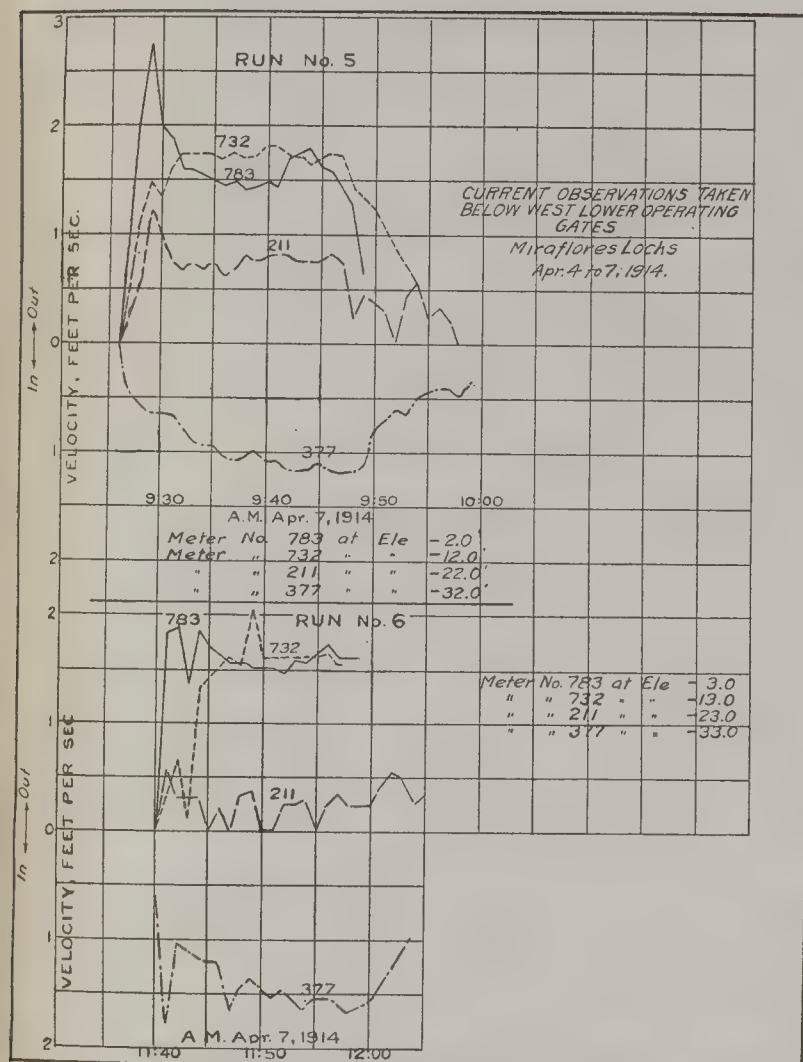 3
RUN No. 5
2
732
783
CURRENT OBSERVATIONS TAKEN
BELOW WEST LOWER OPERATING
GATES
Miraflores Lochs
Apr. 4 to 7, 1914.
1
211
0
In ←→ Out
VELOCITY, FEET PER SEC.
1
377
9:30 9:40 9:50 10:00
A.M. Apr. 7, 1914
Meter No. 783 at Ele -2.0'
Meter " 732 " " -12.0'
" " 211 " " -22.0'
" " 377 " " -32.0'
2
2
783
RUN No. 6
732
Meter No. 783 at Ele -3.0
" " 732 " " -13.0
" " 211 " " -23.0
" " 377 " " -33.0
1
211
0
In ←→ Out
VELOCITY, FEET PER SEC
1
377
2
A M. Apr. 7, 1914
11:40 11:50 12:00